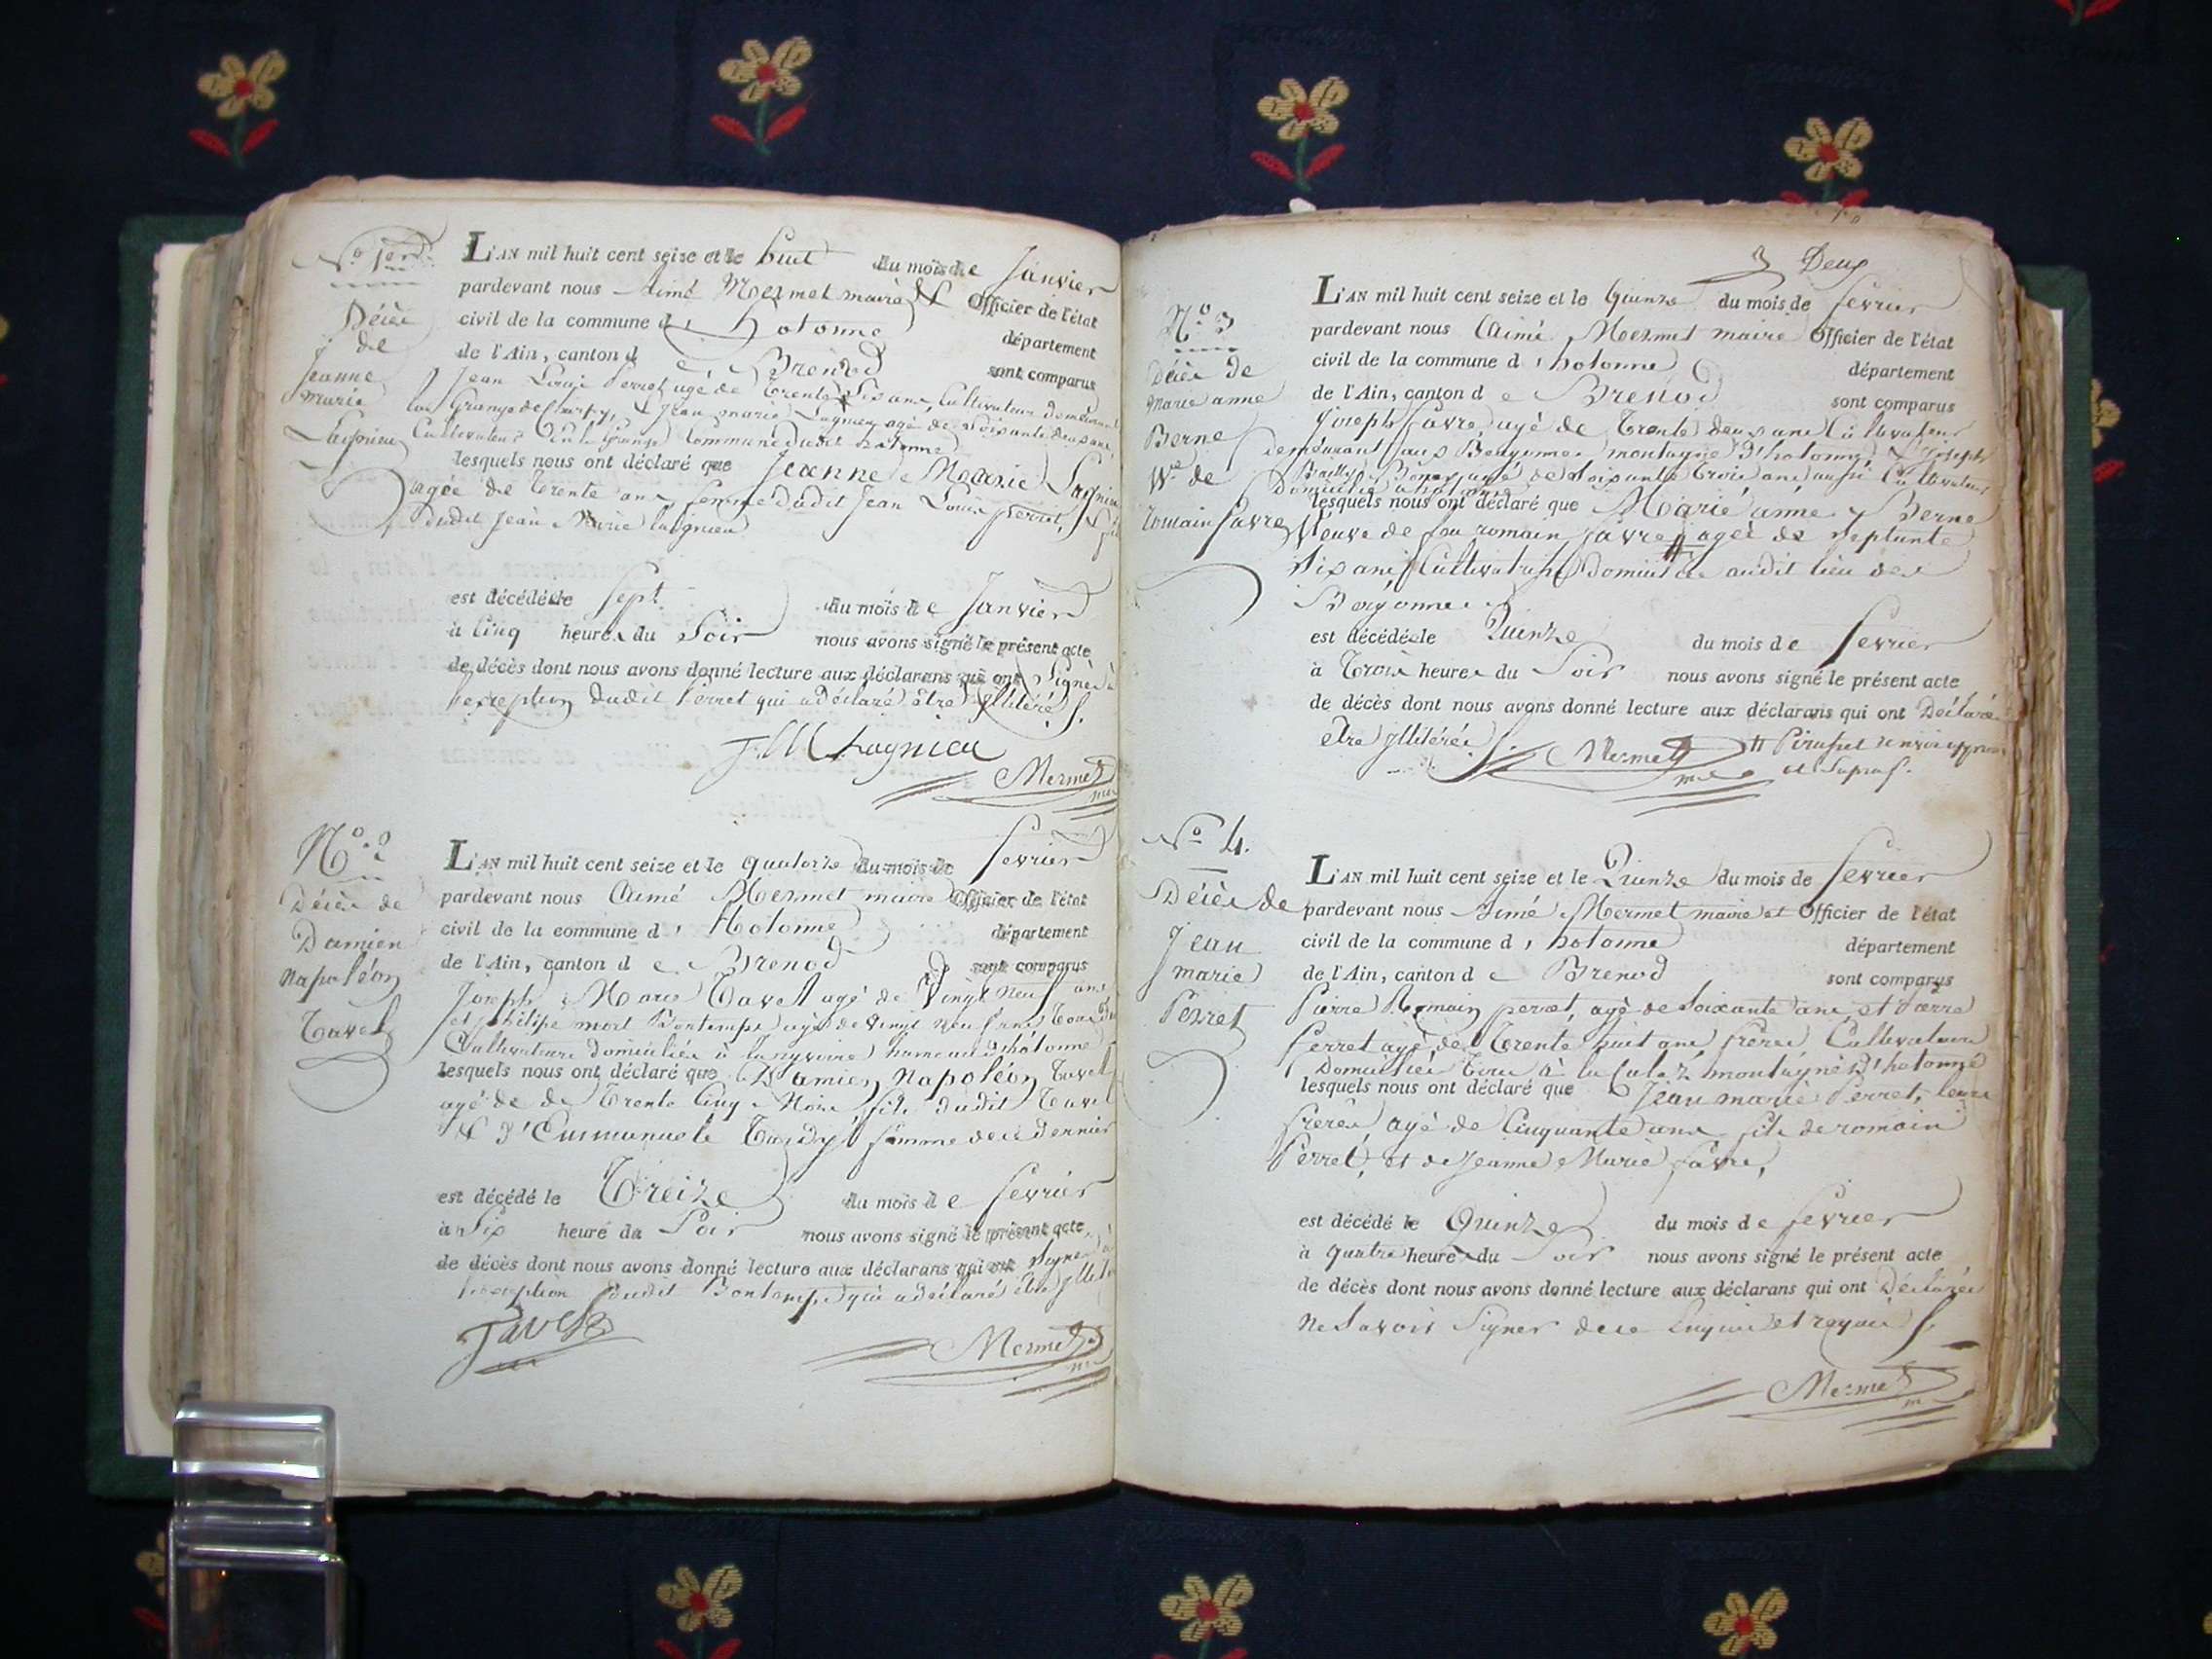 N.o 1er
Décès
de
Jeanne
Marie
Lagnieu
L'AN mil huit cent seize et le huit du mois de Janvier
pardevant nous Aimé Mermet maire & Officier de l'état
civil de la commune d' hotonne département
de l'Ain, canton de Brenod sont comparus
Jean Louis Perret agé de Trente Six ans, Cultivateur demeurant
la Grange & Jean marie Lagnieu agé de Soixante deux ans,
Cultivateur la Grange Commune dudit hotonne
lesquels nous ont déclaré que Jeanne Marie Lagnieu
agée de Trente ans, femme dudit Jean Louis perret, &
dudit Jean Marie lagnieu
est décédée le Sept du mois de Janvier
à Cinq heures du Soir nous avons signé le présent acte
de décès dont nous avons donné lecture aux déclarans qui ont Signés à
l'exception dudit Perret qui a déclaré être Illiteré
J M Lagnieu
Mermet
N.o 2
Décès de
Damien
Napoléon
Tavel
L'AN mil huit cent seize et le quatorze du mois de fevrier
pardevant nous Aimé Mermet maire Officier de l'état
civil de la commune d' Hotonne département
de l'Ain, canton de Brenod sont comparus
Joseph Marie Tavel agé de Vingt neuf ans
et philipe mort Bontemps agé de vingt neuf ans Tous deux
Cultivateurs domiciliés à hameau d'hotonne
lesquels nous ont déclaré que Damien Napoléon Tavel
agé de de Trente Cinq Mois, fils dudit Tavel
& d'Emmanuele Tardy femme de ce dernier
est décédé le Treize du mois de fevrier
à Six heure du Soir nous avons signé le présent acte
de décès dont nous avons donné lecture aux déclarans qui ont Signer à
l'exception dudit Bontemps qui a déclaré être
Tavel
Mermet
Deux
N.o 3
Décès de
Marie anne
Berne
Ve de
Romain favre
L'AN mil huit cent seize et le Quinze du mois de fevrier
pardevant nous Aimé Mermet maire Officier de l'état
civil de la commune d' hotonne département
de l'Ain, canton de Brenod sont comparus
joseph favre, agé de Trente deux ans Cultivateur
demeurant montagne d'hotonne, & Joseph
agé de Soixante Trois ans aussi Cultivateur
Domicilié à hotonne
lesquels nous ont déclaré que Marie anne Berne
Veuve de feu romain favre agée de Septante
Six ans, Cultivatrice Domiciliée audit lieu des
Bergonnes
est décédée le Quinze du mois de fevrier
à Trois heures du Soir nous avons signé le présent acte
de décès dont nous avons donné lecture aux déclarans qui ont Déclarés
être Illitérés
Mermet
N.o 4.
Décès de
Jean
marie
Perret
L'AN mil huit cent seize et le Quinze du mois de fevrier
pardevant nous Aimé Mermet maire et Officier de l'état
civil de la commune d' hotonne département
de l'Ain, canton de Brenod sont comparus
Pierre Romain perret, agé de Soixante ans et Pierre
Perret agé de Trente huit ans frères Cultivateurs
Domiciliés Tous à la Culaz montagne d'hotonne
lesquels nous ont déclaré que Jean marie Perret, leurs
frères agé de Cinquante ans fils de romain
Perret, et de Jeanne Marie favre,
est décédé le Quinze du mois de fevrier
à quatre heures du Soir nous avons signé le présent acte
de décès dont nous avons donné lecture aux déclarans qui ont Déclarés
Ne Savoir Signer de ce Enquis et requis
Mermet